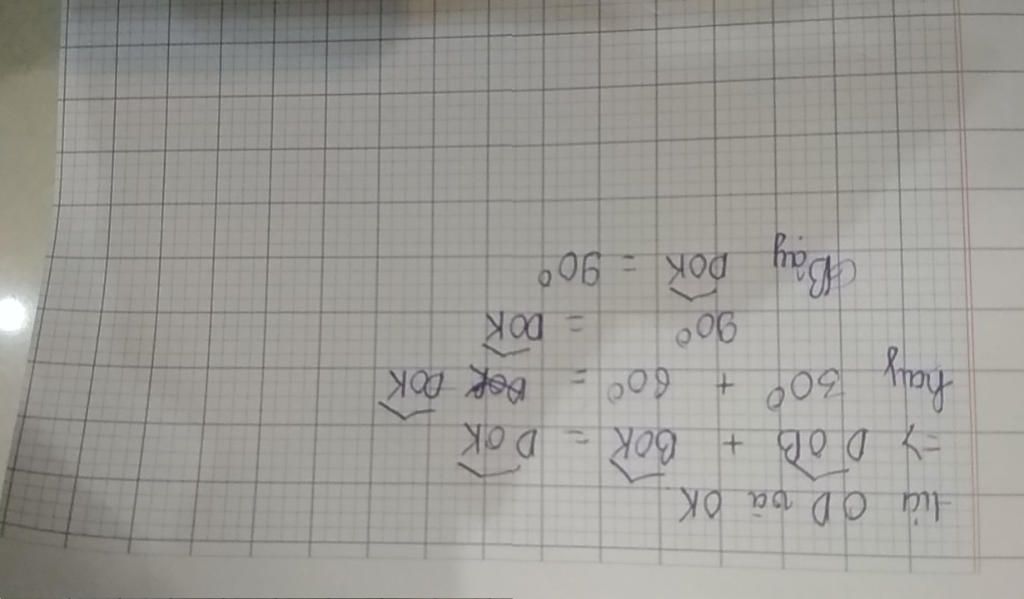 tia OD và OK
=> DOB + BOK = DOK
hay 30° + 60° = DOK DOK
90° = DOK
Bay DOK = 90°